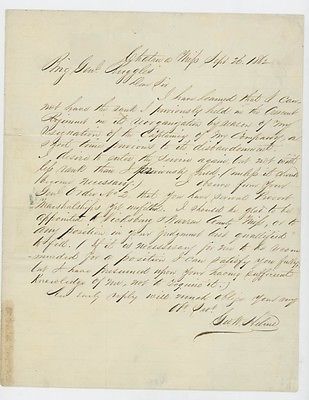 Miss Sept 26, 1862
Brig Genl Ruggles
Dear Sir
I have learned that I can
not have the rank I previously held in the
on its reorganization by reason of my
resignation of the Captaincy of my Company a
short time previous to its disbandonment.
I desire to enter the service again but not with
less rank than I previously held (unless it should
become necessary.) I learn from your
Genl Order No that you have several Provost
Marshalships yet I should be glad to be
appointed to Vicksburg & Warren County Miss, or to
any position in your judgment best qualified
to fill. (If it is necessary for me to be recom
mended for a position I can satisfy you fully,
but I have presumed upon your having sufficient
knowledge of me, not to require it.)
An early reply will much oblige yours very
Obt Servt
Geo W.